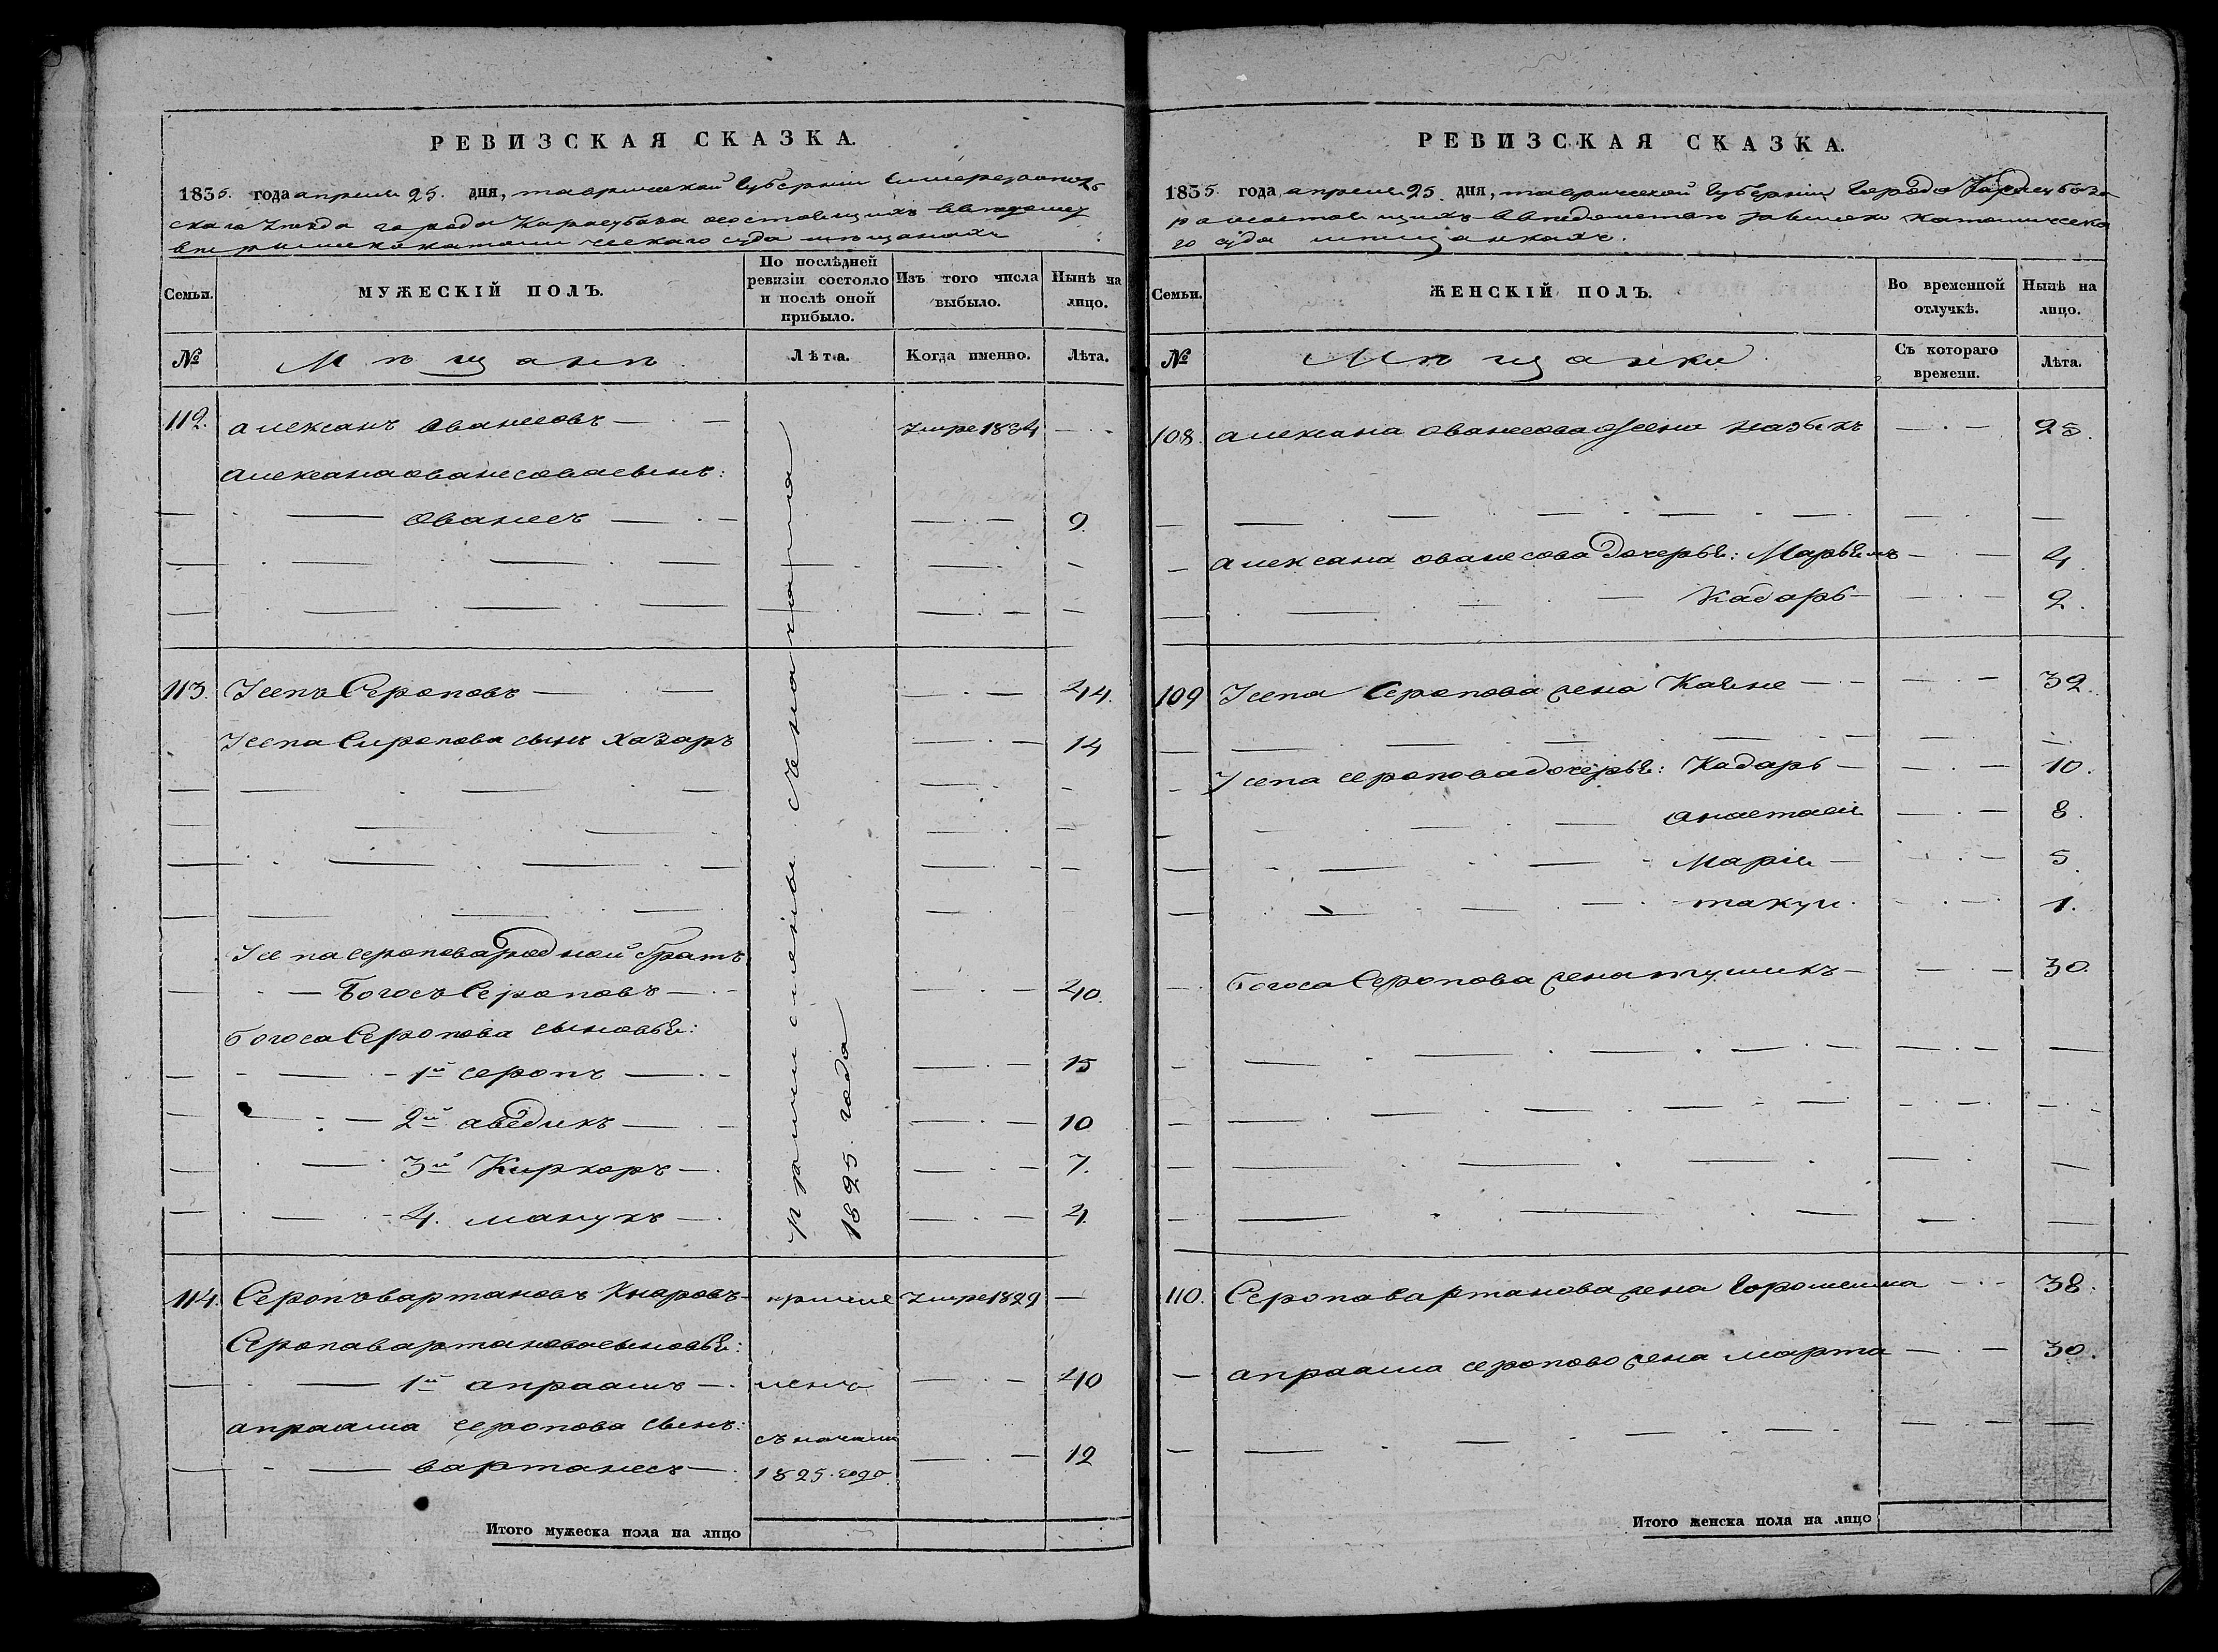 РЕВИЗСКАЯ СКАЗКА.
1835. года апреля 25. дня, таврической Губернии Симферополь
скаго Уезда города Карасубазара состоящихъ в ведомст
ве римско католическаго суда мещанахъ
Семьи.
МУЖЕСКІЙ ПОЛЪ.
По послѣдней ревизіи состояло и послѣ оной прибыло.
Изъ того числа выбыло.
Нынѣ на лицо.
№
Мѣщанѣ
Лѣта.
Когда именно.
Лѣта.
112. Алексанъ Ованесовъ — Умре 1834 —
Алексана Ованесова сынъ:
Ованесъ — 9.
113. Усепъ Сероповъ — 44.
Усепа Серопова сынъ Хазаръ — 14
Усепа Серопова родной братъ
Богосъ Сероповъ — 40.
Богоса Серопова сыновьи:
1й Серопъ — 15
2й аведикъ — 10
3й Киркоръ — 7.
4. манукъ — 4.
причислены съ начала
1825. года
114. Серопъ Вартановъ Кнаровъ — причис Умре 1829 —
Серопа Вартанова сыновьи:
1й апраамъ — ленъ — 40
апраама серопова сынъ:
вартанесъ — съ начала 1825. года — 12
Итого мужеска пола на лицо
РЕВИЗСКАЯ СКАЗКА.
1835. года апреля 25. дня, таврической Губернии Города Карасубаза
ра состоящихъ в ведомстве римско католическа
го суда мещанкахъ.
Семьи.
ЖЕНСКІЙ ПОЛЪ.
Во временной отлучкѣ.
Нынѣ на лицо.
№
Мѣщанки
Съ котораго времени.
Лѣта.
108. Алексана Ованесова жена Назыкъ — 25.
Алексана Ованесова дочерьи: Марьямъ — 4.
Кадаръ — 2.
109 Усепа Серопова жена Каяне — 32.
Усепа серопова дочерьи: Кадаръ — 10.
анастаси — 8.
Марія — 5.
такуи. — 1.
Богоса Серопова жена тушикъ — 30.
110. Серопа Вартанова жена Горомсима — 38.
апраама серопова жена марта — 30.
Итого женска пола на лицо